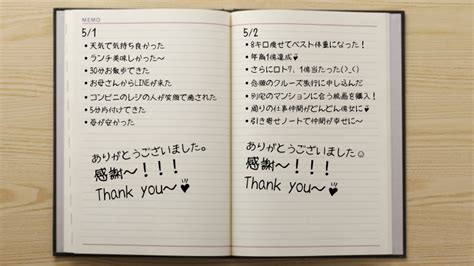 MEMO
5/1
• 天気で気持ち良かった
• ランチ美味しかった〜
• 30分お散歩できた
• お母さんからLINEが来た
• コンビニのレジの人が笑顔で癒された
• 5分片付けできた
• 昼が安かった
ありがとうございました。
感謝〜!!!
Thank you〜
5/2
• 8キロ痩せてベスト体重になった!
• 年商1億達成
• さらにロト7、1億当たった(>_<)
• 念願のクルーズ旅行に申し込んだ
• 別宅のマンションに合う絵画を購入!
• 周りの仕事仲間がどんどん億女に
• 引き寄せノートで仲間が幸せに〜
ありがとうございました☺
感謝〜!!!
Thank you〜